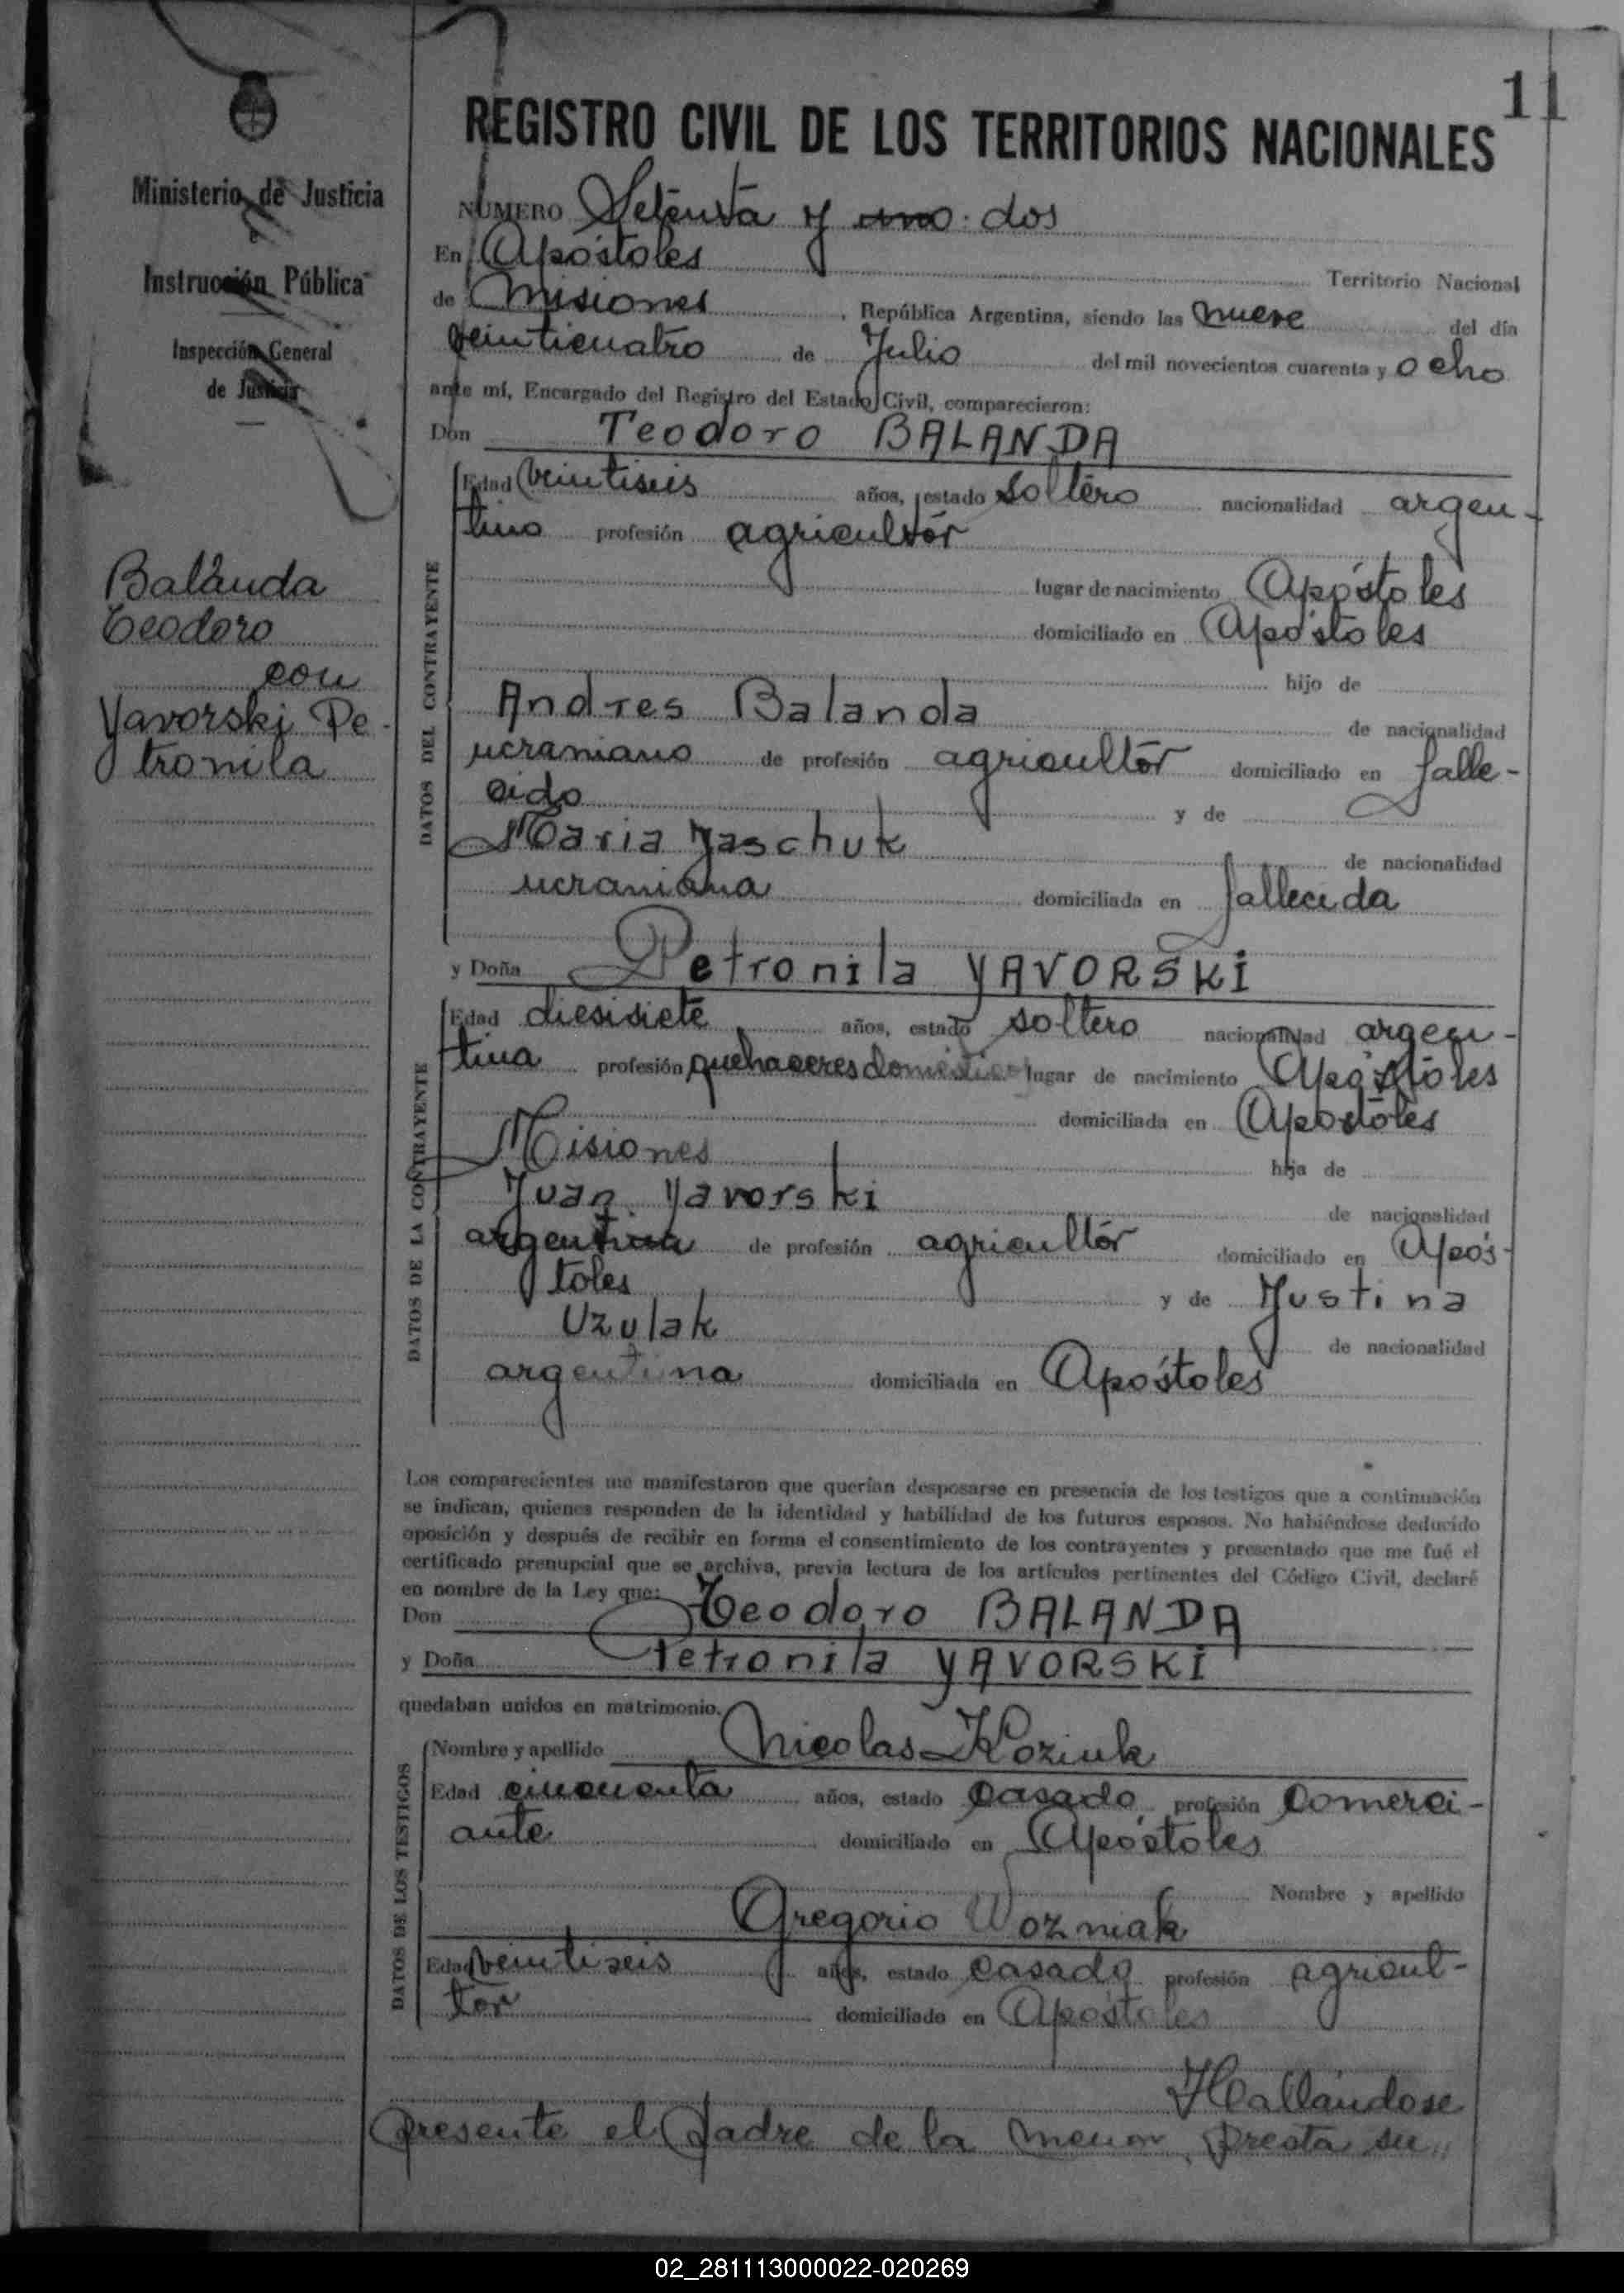 11
Ministerio de Justicia
e
Instrucción Pública
Inspección General
de Justicia
Balanda
Teodoro
con
Yavorski Pe-
tronila
REGISTRO CIVIL DE LOS TERRITORIOS NACIONALES
NÚMERO Setenta y uno: dos
En Apóstoles Territorio Nacional
de Misiones, República Argentina, siendo las nueve del día
veinticuatro de Julio del mil novecientos cuarenta y ocho
ante mí, Encargado del Registro del Estado Civil, comparecieron:
Don Teodoro BALANDA
DATOS DEL CONTRAYENTE
Edad veintiseis años, estado soltero nacionalidad argen-
tino profesión agricultor
lugar de nacimiento Apóstoles
domiciliado en Apóstoles
hijo de
Andres Balanda de nacionalidad
ucraniano de profesión agricultor domiciliado en falle-
cido y de
Maria Yaschuk de nacionalidad
ucraniana domiciliada en fallecida
y Doña Petronila YAVORSKI
DATOS DE LA CONTRAYENTE
Edad diesisiete años, estado soltero nacionalidad argen-
tina profesión quehaceres domestico lugar de nacimiento Apóstoles
domiciliada en Apostoles
Misiones hija de
Juan Yavorski de nacionalidad
argentina de profesión agricultor domiciliado en Após-
toles y de Justina
Uzulak de nacionalidad
argentina domiciliada en Apóstoles
Los comparecientes me manifestaron que querían desposarse en presencia de los testigos que a continuación
se indican, quienes responden de la identidad y habilidad de los futuros esposos. No habiéndose deducido
oposición y después de recibir en forma el consentimiento de los contrayentes y presentado que me fué el
certificado prenupcial que se archiva, previa lectura de los artículos pertinentes del Código Civil, declaré
en nombre de la Ley que:
Don Teodoro BALANDA
y Doña Petronila YAVORSKI
quedaban unidos en matrimonio.
DATOS DE LOS TESTIGOS
Nombre y apellido Nicolas Koziuk
Edad cincuenta años, estado casado profesión comerci-
ante domiciliado en Apóstoles
Nombre y apellido
Gregorio Wozniak
Edad veintiseis años, estado casado profesión agricul-
tor domiciliado en Apóstoles
Hallándose
presente el padre de la menor presta su
02_281113000022-020269